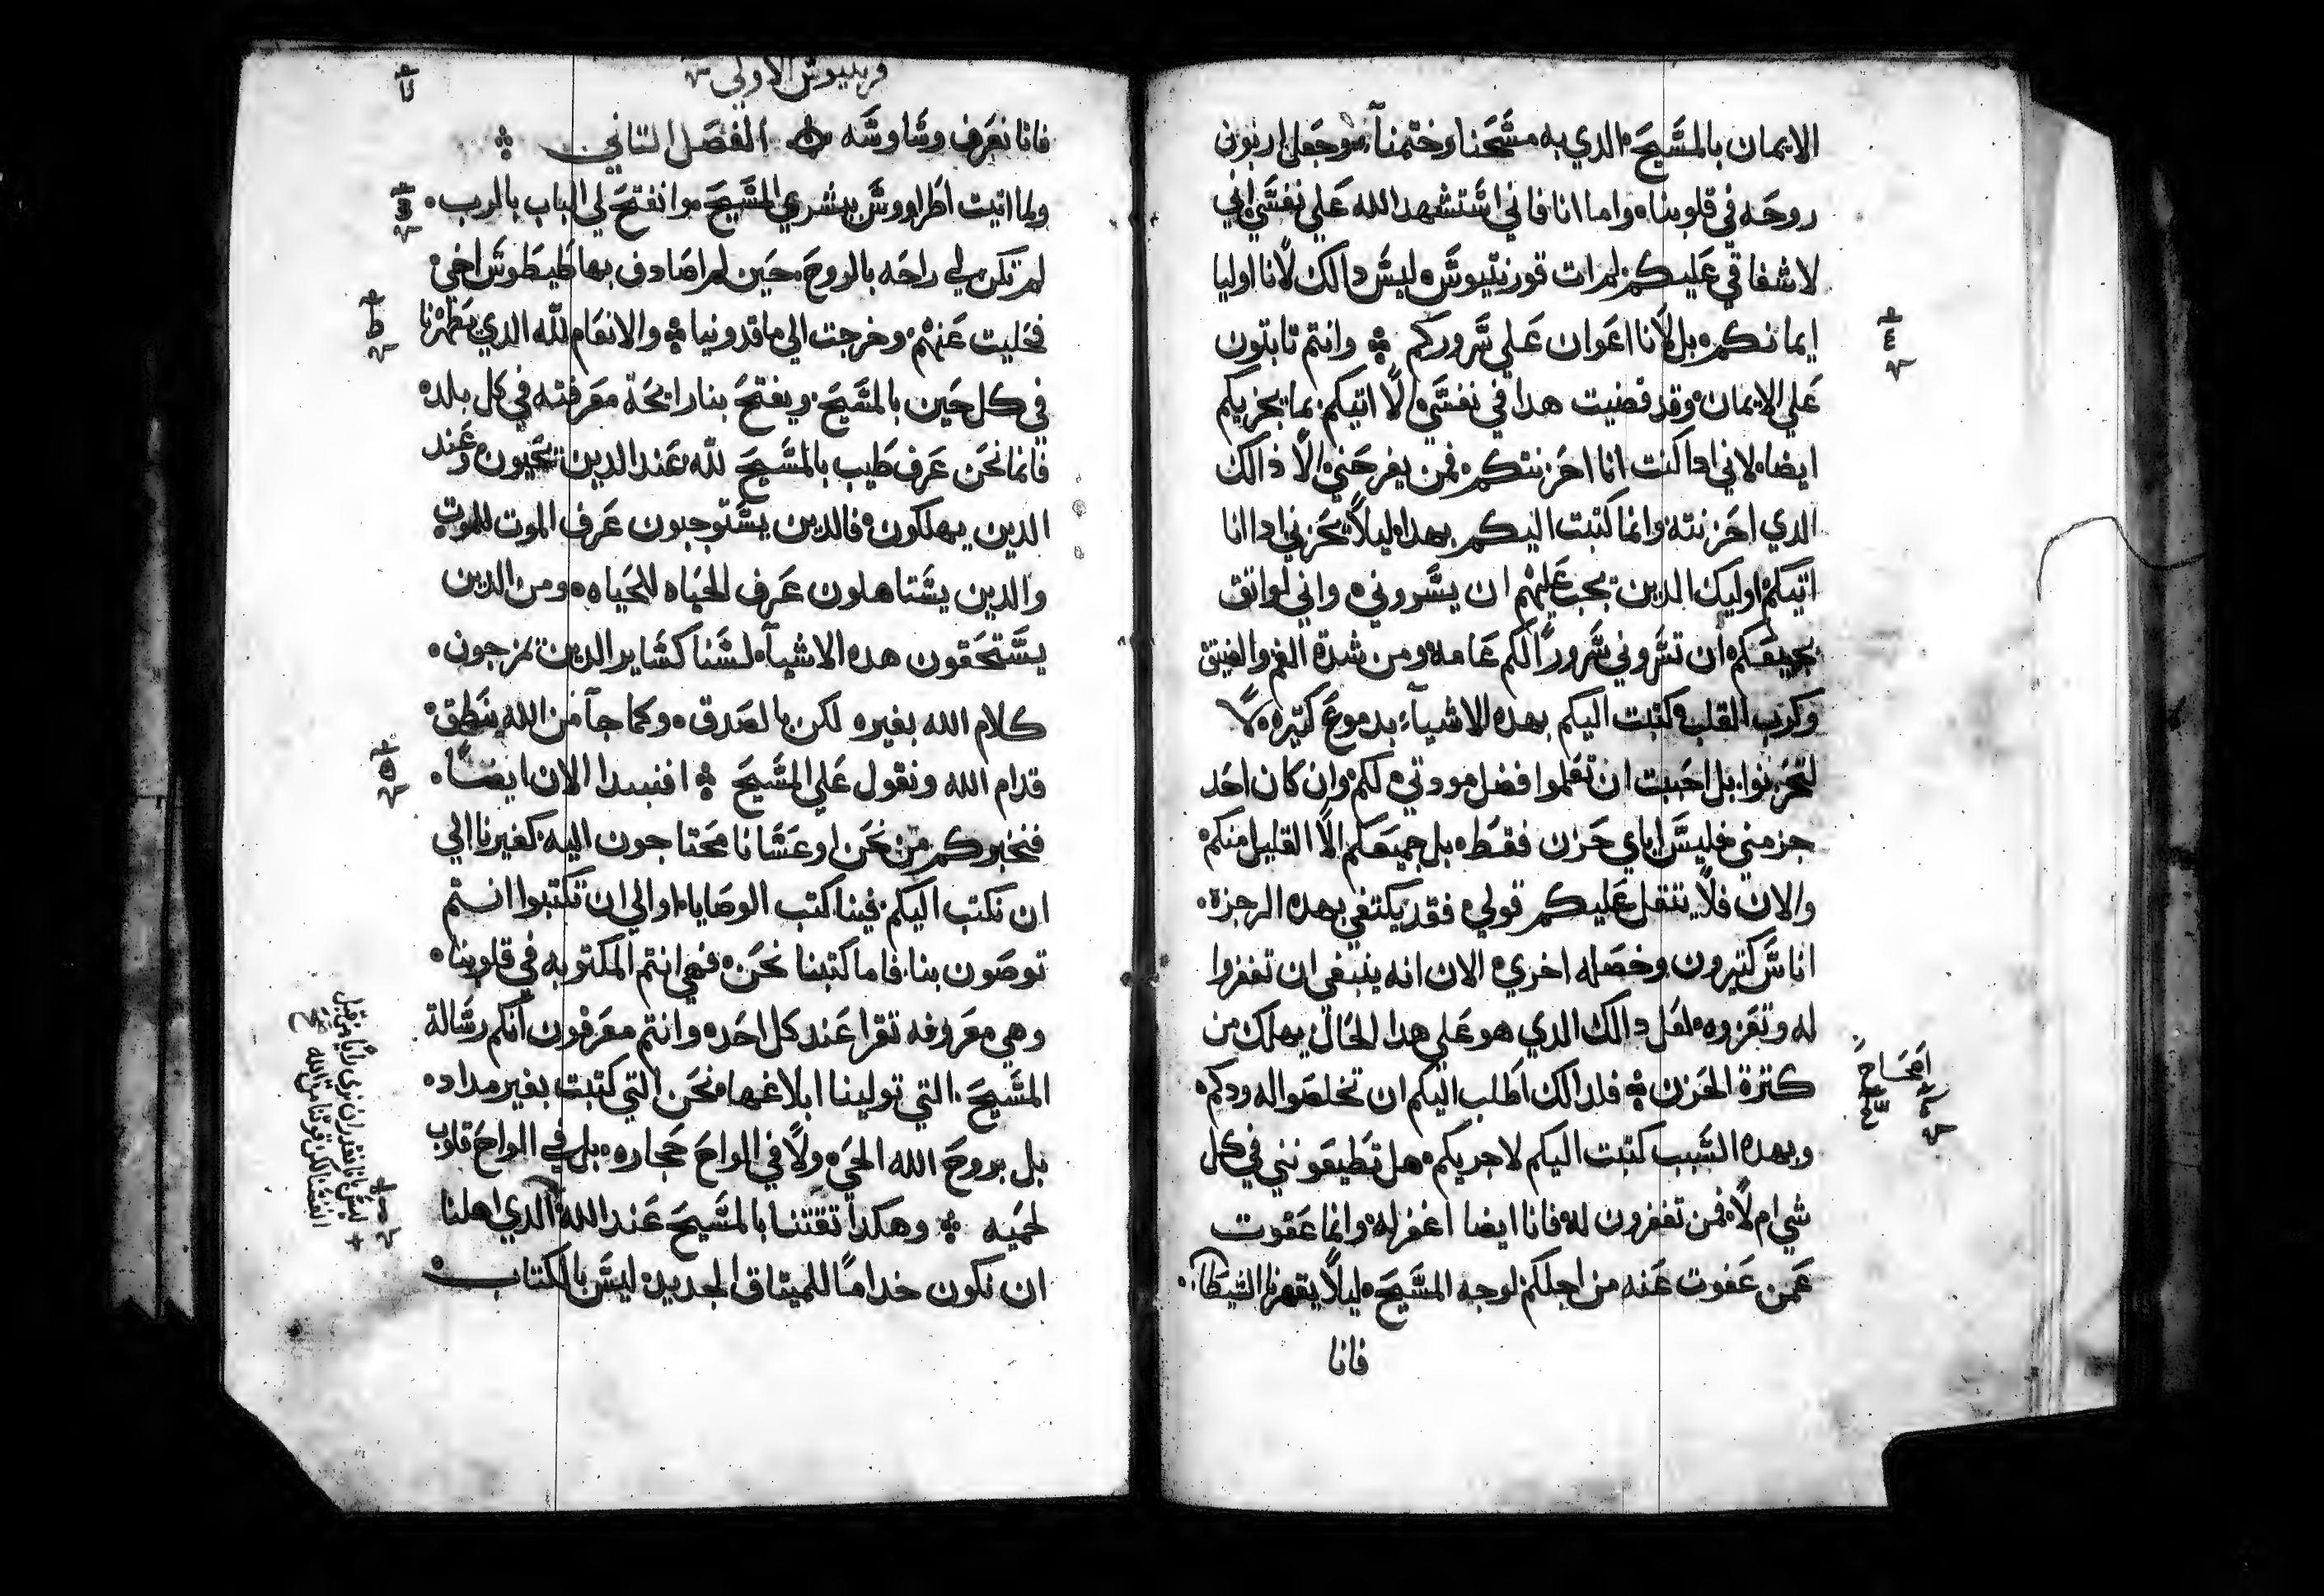 الايمان بالمسيح الدي به مسحنا وختمنا وجعل اربون
روحه في قلوبنا واما انا فاني استشهد الله علي نفسي اني
لاشفاقي عليكم لم ات قورنتيوس ليس دالك لانا اوليا
ايمانكم بل لانا اعوان علي سروركم وانتم تابتون
علي الايمان وقد قضيت هدا في نفسي الا اتيكم بما يحزيكم
ايضا لاني ادا كنت انا احزنتكم فمن يفرحني الا ذالك
الدي احزنته وانما كتبت اليكم بهدا ليلا يحزني ادا انا
اتيتكم اوليك الدين يجب عليهم ان يسروني واني لواتق
بجميعكم ان تسروني سرورا لكم عامه ومن شدة الغم والضيق
وكرب القلب كتبت اليكم بهده الاشياء بدموع كتيره لا
لتحزنوا بل احببت ان تعلموا فضل مودتي لكم وان كان احد
حزمني فليس اياي حزن فقط بل جميعكم الا القليل منكم
والان فلا يتقل عليكم قولي فقد يكتفي بهده الرجزة
اناس كتيرون وخصله اخري الان انه ينبغي ان تغفروا
له وتعزوه لعل دالك الدي هو علي هدا الحال يهلك من
كترة الحزن فلدالك اطلب اليكم ان تخلصوا له ودكم
وبهده السبب كتبت اليكم لاجربكم هل تطيعونني في كل
شي ام لا فمن تغفرون له فانا ايضا اغفر له وانما عفوت
عمن عفوت عنه من اجلكم لوجه المسيح ليلا يقهرنا الشيطان
فانا
اصحاح
الاولي
فانا نعرف وساوسه الفصل التاني
ولما اتيت اطراووس ببشري المسيح وانفتح لي الباب بالرب
لم تكن لي راحه بالروح حين لم اصادف بها طيطوس اخي
فخليت عنهم وخرجت الي ماقدونيا والانعام لله الدي يظهرنا
في كل حين بالمسيح ويفتح بنا رايحة معرفته في كل بلده
فانما نحن عرف طيب بالمسيح لله عند الدين يحيون وعند
الدين يهلكون فالدين يستوجبون عرف الموت للموت
والدين يستاهلون عرف الحياه للحياه ومن الدين
يستحقون هده الاشيا لسنا كساير الدين يمزجون
كلام الله بغيره لكن بالصدق وكما جا من الله ينطق
قدام الله ونقول علي المسيح افنبدا الان ايضا
فنخبركم من نحن او عسانا محتاجون اليه كغيرنا الي
ان نكتب اليكم فينا كتب الوصايا او الي ان تكتبوا انتم
توصون بنا فاما كتبنا نحن فهي انتم المكتوبه في قلوبنا
وهي معروفه تقرا عند كل احد وانتم معرفون انكم رسالة
المسيح التي تولينا ابلاغها نحن التي كتبت بغير مداد
بل بروح الله الحي ولا في الواح حجاره بل في الواح قلوب
لحميه وهكدا تقتنا بالمسيح عند الله الدي اهلنا
ان نكون خداما للميتاق الجديد ليس بالكتاب
ليس بانا نقدر ان نري رايا من قبل
انفسنا لكن قوتنا من الله